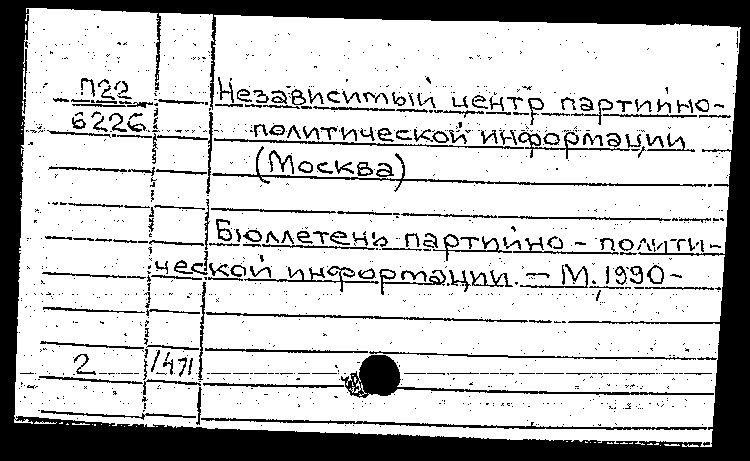 П22
6226
Независимый центр партийно-
политической информации
(Москва)
Бюллетень партийно-полити-
ческой информации. — М., 1990-
2 1471